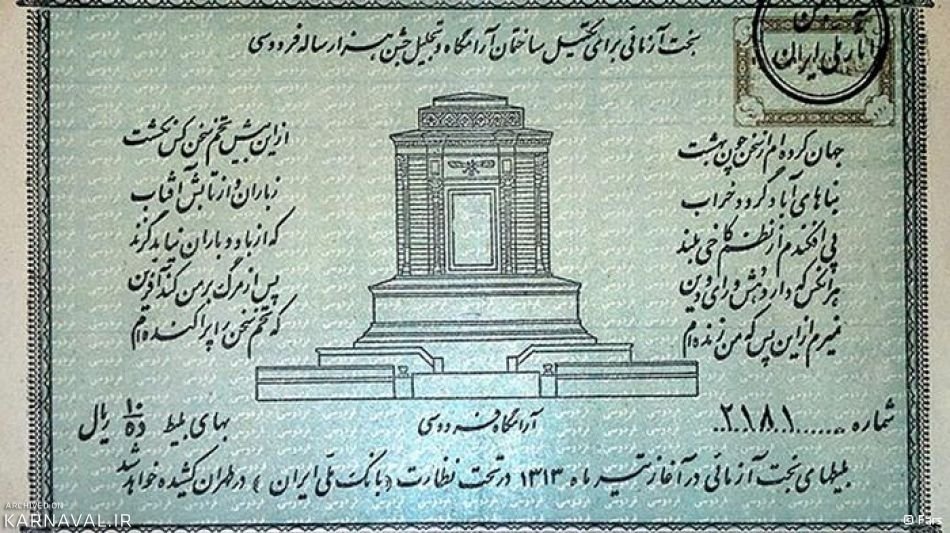 بخت آزمائی برای تکمیل ساختمان آرامگاه و تجلیل جشن هزار ساله فردوسی
انجمن
آثار ملی ایران
جهان کرده‌ام از سخن چون بهشت
ازین بیش تخم سخن کس نکشت
بناهای آباد گردد خراب
ز باران و از تابش آفتاب
پی افکندم از نظم کاخی بلند
که از باد و باران نیابد گزند
هر آنکس که دارد هش و رای و دین
پس از مرگ بر من کند آفرین
نمیرم از این پس که من زنده‌ام
که تخم سخن را پراکنده‌ام
آرامگاه فردوسی
شماره ....۲۱۸۱..
بهای بلیط ۱۰ ده ریال
بلیطهای بخت آزمائی در آغاز تیر ماه ۱۳۱۳ در تحت نظارت (بانک ملی ایران) در طهران کشیده خواهد شد
ARCHIVED ON
KARNAVAL.IR
© Fars